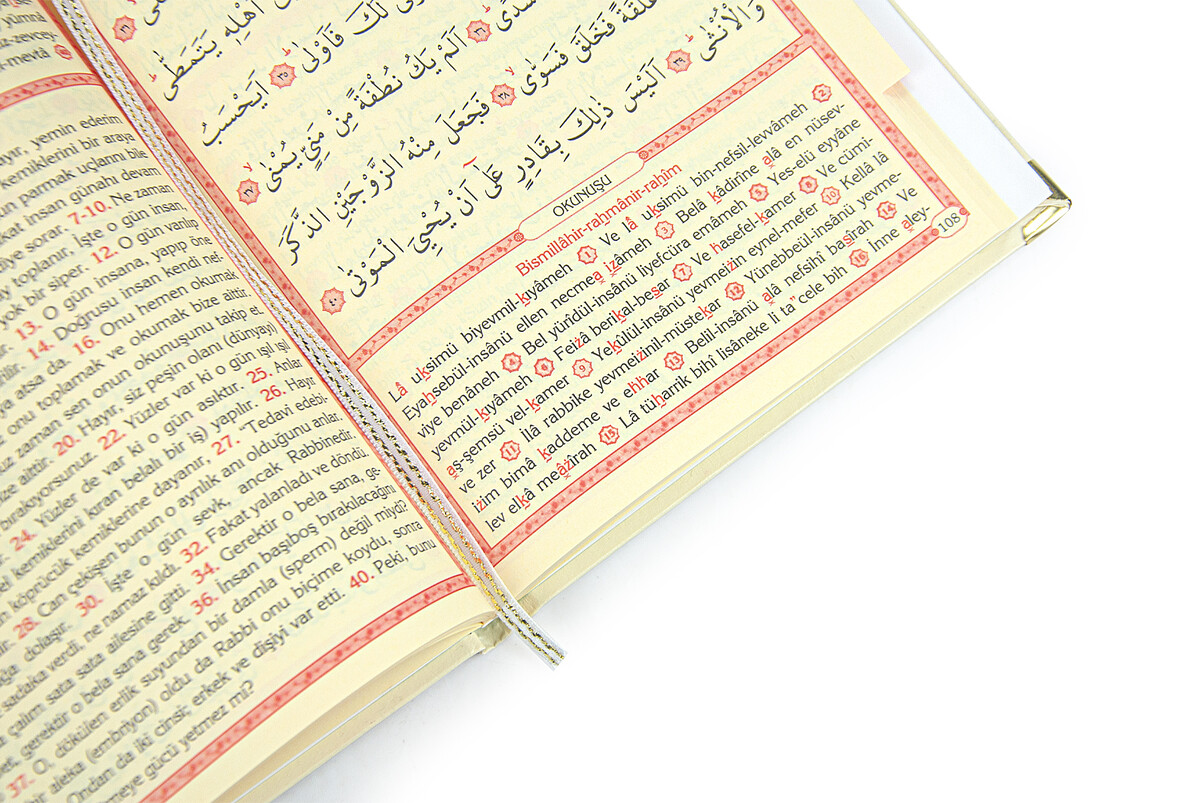 yümnâ
z-zevcey-
-mevtâ
ayır, yemin ederim
kemiklerini bir araya
un parmak uçlarını bile
kat insan günahı devam
diye sorar. 7-10. Ne zaman
y toplanır, İşte o gün insan,
yok bir siper. 12. O gün varılıp
13. O gün insana, yapıp öne
14. Doğrusu insan kendi nef-
ya atsa da. 16. Onu hemen okumak
z onu toplamak ve okumak bize aittir.
uz zaman sen onun okunuşunu takip et.
ize aittir. 20. Hayır, siz peşin olanı (dünyayı)
bırakıyorsunuz. 22. Yüzler var ki o gün ışıl ışıl
24. Yüzler de var ki o gün asıktır. 25. Anlar
el kemiklerini kıran belalı bir iş) yapılır. 26. Hayır
n köprücük kemiklerine dayanır, 27. “Tedavi edebi-
ir. 28. Can çekişen bunun o ayrılık anı olduğunu anlar.
ağa dolaşır. 30. İşte o gün sevk, ancak Rabbinedir.
sadaka verdi, ne namaz kıldı. 32. Fakat yalanladı ve döndü.
a çalım sata sata ailesine gitti. 34. Gerektir o bela sana, ge-
er, gerektir o bela sana gerek. 36. İnsan başıboş bırakılacağını
37. O, dökülen erlik suyundan bir damla (sperm) değil miydi?
bir aleka (embriyon) oldu da Rabbi onu biçime koydu, sonra
Ondan da iki cinsi; erkek ve dişiyi var etti. 40. Peki, bunu
meye gücü yetmez mi?
اَهْلِه۪ يَتَمَطّٰىۜ ﴿٣٣﴾
لَكَ فَاَوْلٰىۜ ﴿٣٥﴾ اَيَحْسَبُ
سُدًىۜ ﴿٣٦﴾ اَلَمْ يَكُ نُطْفَةً مِنْ مَنِيٍّ يُمْنٰىۙ ﴿٣٧﴾
عَلَقَةً فَخَلَقَ فَسَوّٰىۙ ﴿٣٨﴾ فَجَعَلَ مِنْهُ الزَّوْجَيْنِ الذَّكَرَ
وَالْاُنْثٰىۜ ﴿٣٩﴾ اَلَيْسَ ذٰلِكَ بِقَادِرٍ عَلٰٓى اَنْ يُحْيِيَ الْمَوْتٰى ﴿٤٠﴾
OKUNUŞU
Bismillâhir-rahmânir-rahîm
Lâ uksimü biyevmil-kıyâmeh 1 Ve lâ uksimü bin-nefsil-levvâmeh 2
Eyahsebül-insânü ellen necmea ızâmeh 3 Belâ kâdirîne alâ en nüsev-
viye benâneh 4 Bel yürîdül-insânü liyefcüra emâmeh 5 Yes-elü eyyâne
yevmül-kıyâmeh 6 Feizâ berikal-besar 7 Ve hasefel-kamer 8 Ve cümi-
aş-şemsü vel-kamer 9 Yekülül-insânü yevmeizin eynel-mefer 10 Kellâ lâ
ve zer 11 İlâ rabbike yevmeizinil-müstekar 12 Yünebbeül-insânü yevme-
izim bimâ kaddeme ve ehhar 13 Belil-insânü alâ nefsihî basîrah 14 Ve
lev elkâ meâzîrah 15 Lâ tüharrik bihî lisâneke li ta" cele bih 16 İnne aley-
108